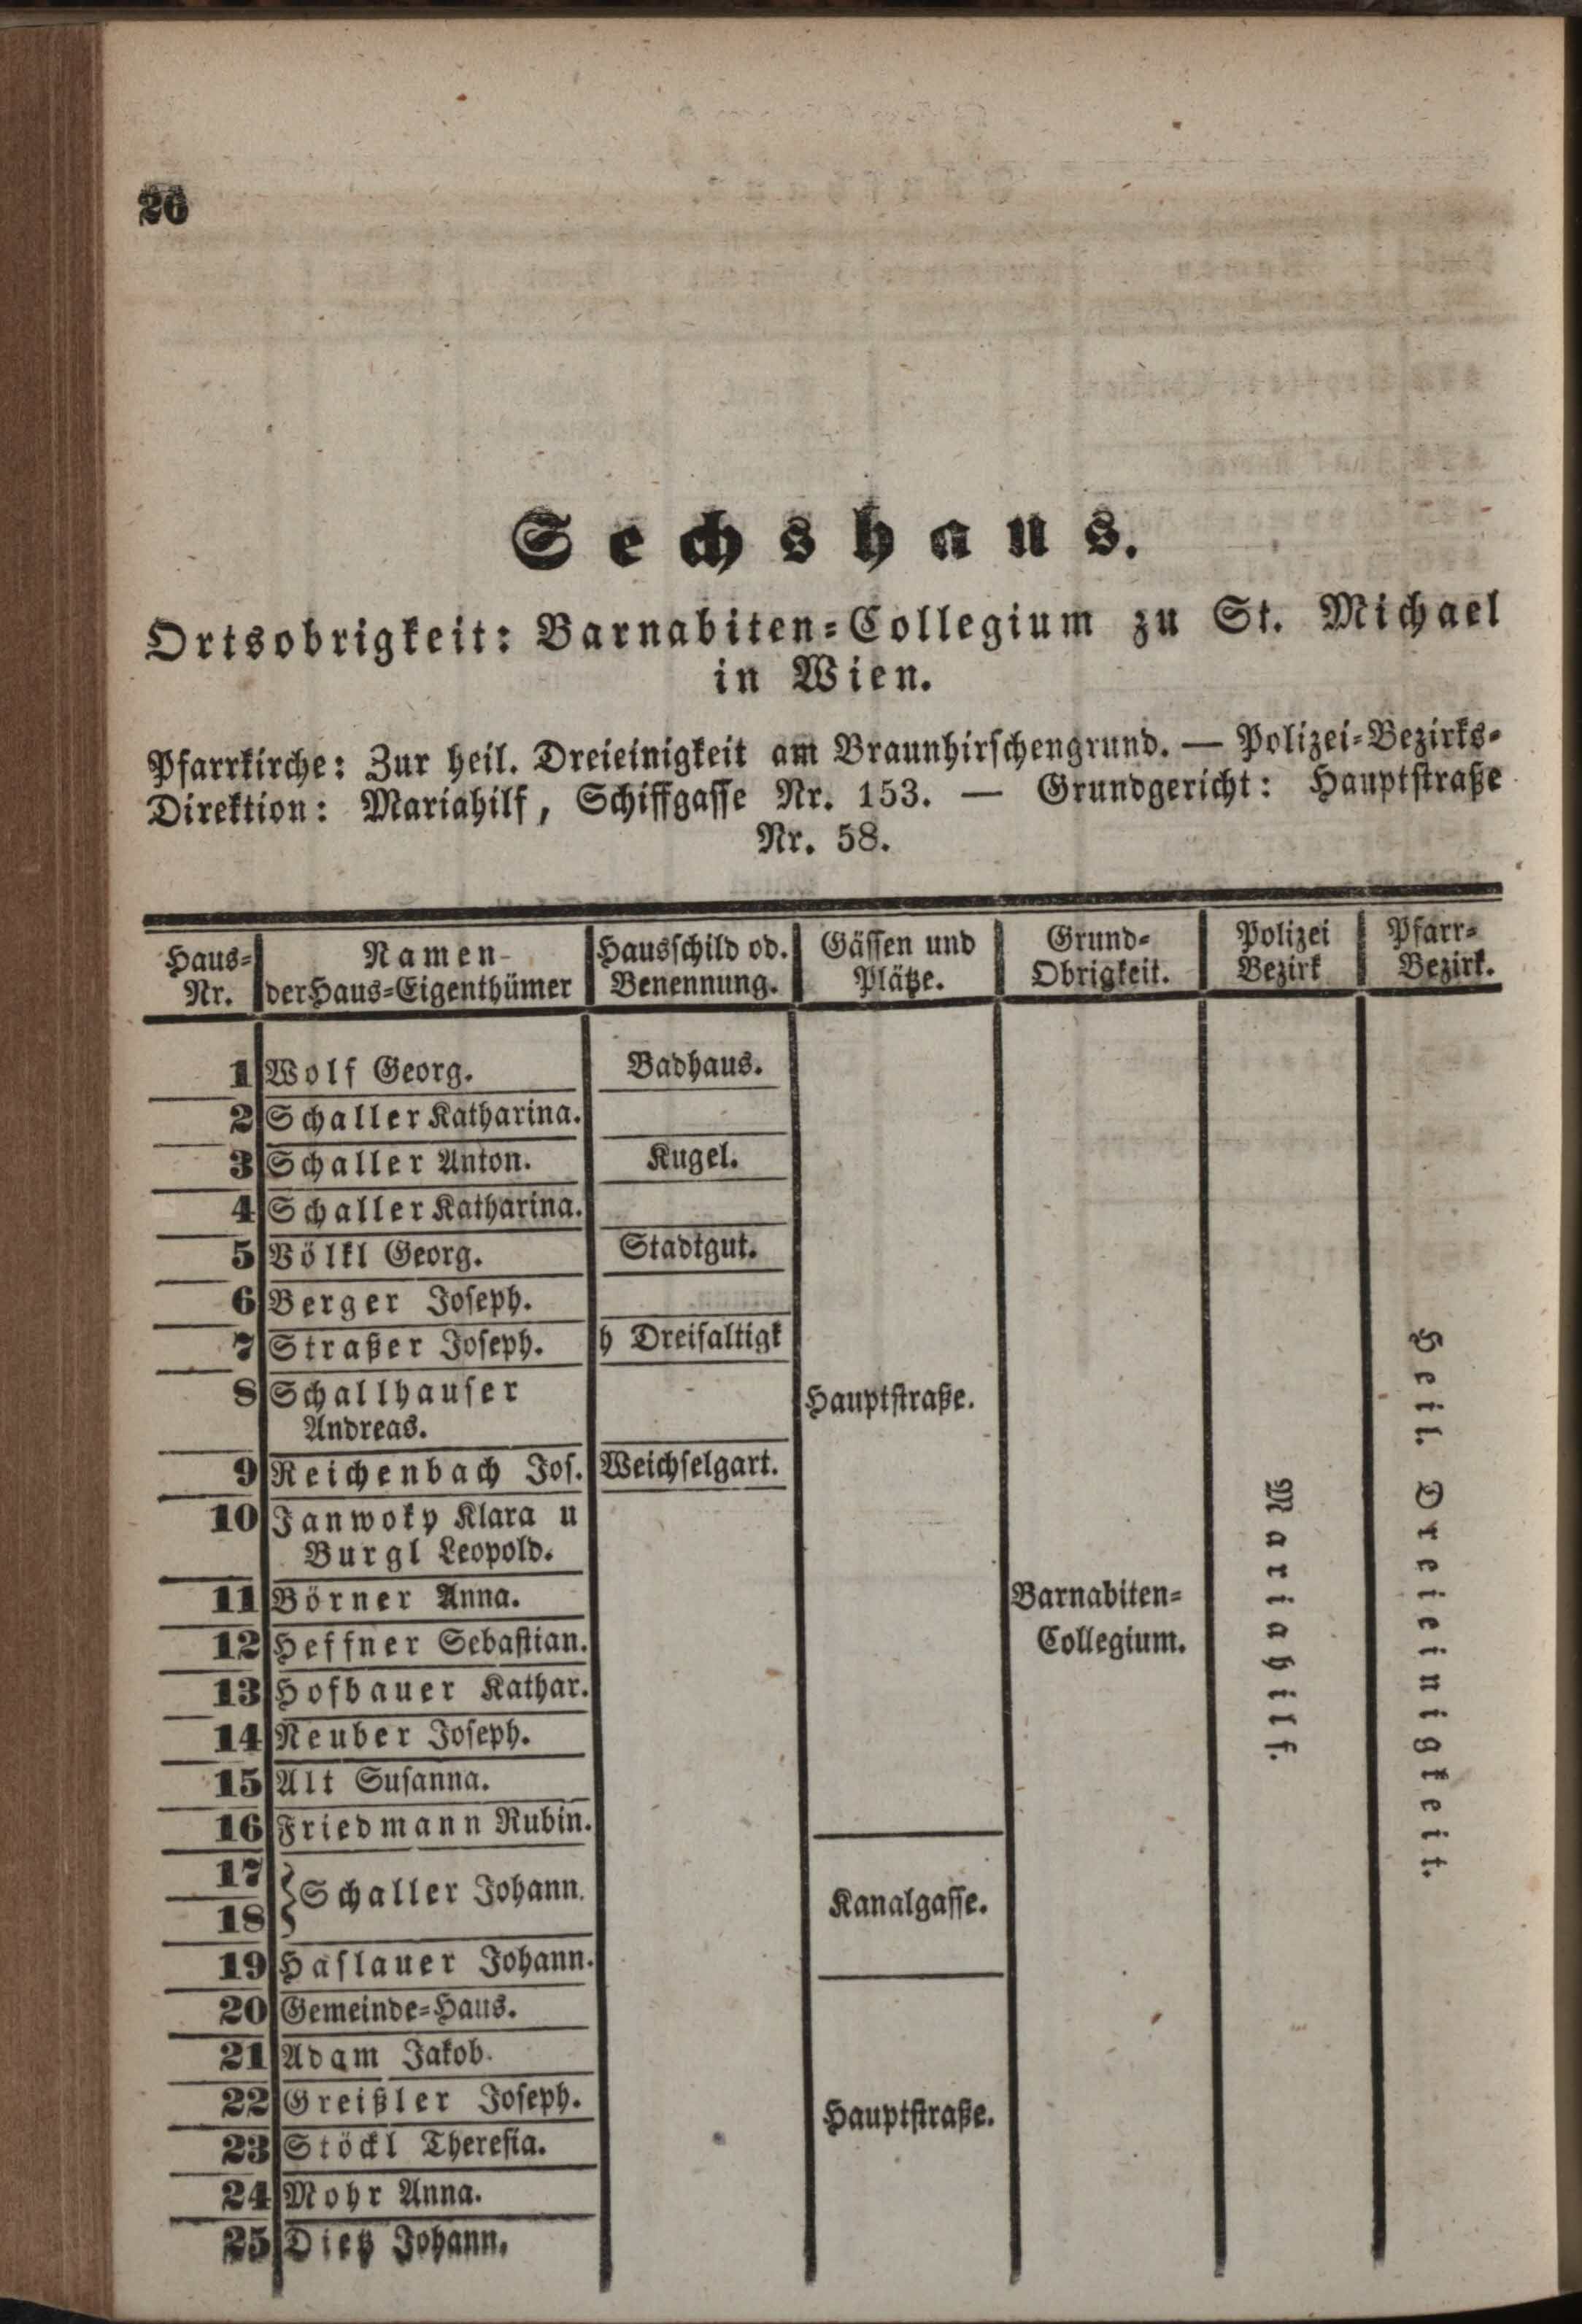 26
Sechshaus.
Ortsobrigkeit: Barnabiten-Collegium zu St. Michael
in Wien.
Pfarrkirche: Zur heil. Dreieinigkeit am Braunhirschengrund. — Polizei-Bezirks-
Direktion: Mariahilf, Schiffgasse Nr. 153. — Grundgericht: Hauptstraße
Nr. 58.
Haus-Nr. | Namen der Haus-Eigenthümer | Hausschild od. Benennung. | Gässen und Plätze. | Grund-Obrigkeit. | Polizei Bezirk | Pfarr-Bezirk.
1 Wolf Georg. Badhaus.
2 Schaller Katharina.
3 Schaller Anton. Kugel.
4 Schaller Katharina.
5 Völkl Georg. Stadtgut.
6 Berger Joseph.
7 Straßer Joseph. h Dreifaltigk
8 Schallhauser
Andreas.
Hauptstraße.
9 Reichenbach Jos. Weichselgart.
10 Janwoky Klara u
Burgl Leopold.
11 Börner Anna.
Barnabiten-
12 Heffner Sebastian.
Collegium.
Mariahilf.
Heil. Dreieinigkeit.
13 Hofbauer Kathar.
14 Neuber Joseph.
15 Alt Susanna.
16 Friedmann Rubin.
17
18
}Schaller Johann.
Kanalgasse.
19 Haslauer Johann.
20 Gemeinde-Haus.
21 Adam Jakob.
22 Greißler Joseph.
Hauptstraße.
23 Stöckl Theresia.
24 Mohr Anna.
25 Dietz Johann.